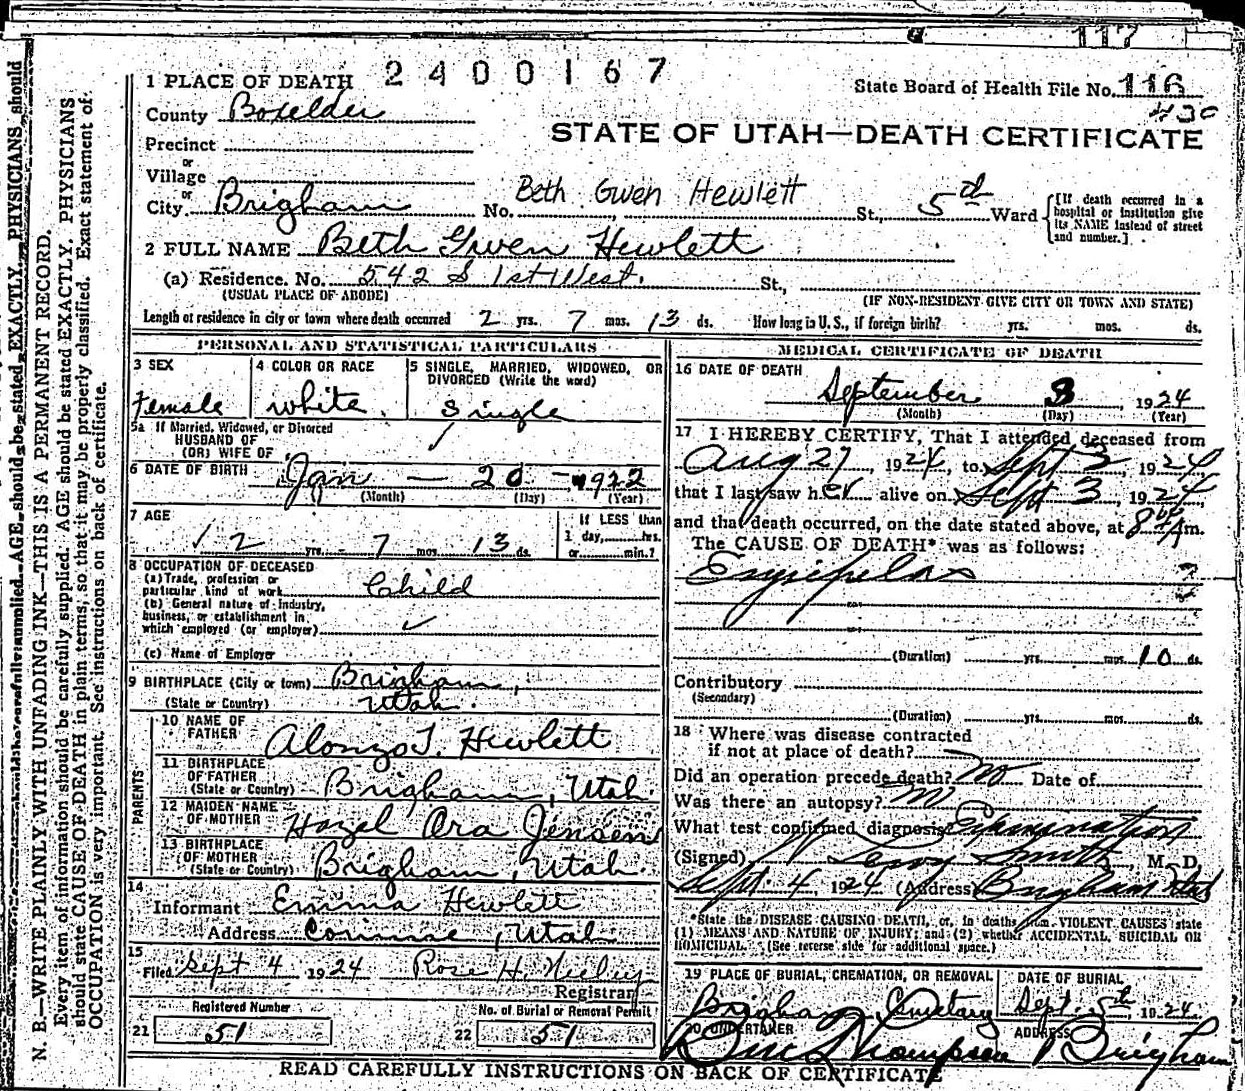 117
2400167
1 PLACE OF DEATH
State Board of Health File No. 116
430
County Boxelder
STATE OF UTAH—DEATH CERTIFICATE
Precinct
or
Village
or
City Brigham No. Beth Gwen Hewlett St., 5th Ward
[If death occurred in a hospital or institution give its NAME instead of street and number.]
2 FULL NAME Beth Gwen Hewlett
(a) Residence. No. 542 S 1st West. St.,
(USUAL PLACE OF ABODE) (IF NON-RESIDENT GIVE CITY OR TOWN AND STATE)
Length of residence in city or town where death occurred 2 yrs. 7 mos. 13 ds. How long in U. S., if foreign birth? yrs. mos. ds.
PERSONAL AND STATISTICAL PARTICULARS
3 SEX
Female
4 COLOR OR RACE
white.
5 SINGLE, MARRIED, WIDOWED, OR DIVORCED (Write the word)
Single
5a If Married, Widowed, or Divorced
HUSBAND OF
(OR) WIFE OF
6 DATE OF BIRTH Jan — 20 — 1922
(Month) (Day) (Year)
7 AGE
2 yrs. - 7 mos. 13 ds.
If LESS than
1 day, hrs.
or min.?
8 OCCUPATION OF DECEASED
(a) Trade, profession or
particular kind of work Child
(b) General nature of industry,
business, or establishment in
which employed (or employer)
(c) Name of Employer
9 BIRTHPLACE (City or town) Brigham,
(State or Country) Utah.
PARENTS
10 NAME OF
FATHER Alonzo T. Hewlett
11 BIRTHPLACE
OF FATHER
(State or Country) Brigham, Utah.
12 MAIDEN NAME
OF MOTHER Hazel Ora Jensen
13 BIRTHPLACE
OF MOTHER
(State or Country) Brigham, Utah.
14
Informant Emma Hewlett
Address Corinne, Utah
15
Filed Sept 4 1924 Rose H. Neeley
Registrar
Registered Number
21 51
No. of Burial or Removal Permit
22 51
MEDICAL CERTIFICATE OF DEATH
16 DATE OF DEATH
September 3, 1924
(Month) (Day) (Year)
17 I HEREBY CERTIFY, That I attended deceased from
Aug 27, 1924, to Sept 3, 1924
that I last saw her alive on Sept 3, 1924
and that death occurred, on the date stated above, at 8 A m.
The CAUSE OF DEATH* was as follows:
Erysipelas
(Duration) yrs. mos. 10 ds.
Contributory
(Secondary)
(Duration) yrs. mos. ds.
18 Where was disease contracted
if not at place of death?
Did an operation precede death? no Date of
Was there an autopsy? no
What test confirmed diagnosis Examination
(Signed) Smith, M. D.
Sept. 4, 1924 (Address Brigham Utah
*State the DISEASE CAUSING DEATH, or, in deaths from VIOLENT CAUSES state
(1) MEANS AND NATURE OF INJURY; and (2) whether ACCIDENTAL, SUICIDAL OR
HOMICIDAL. (See reverse side for additional space.)
19 PLACE OF BURIAL, CREMATION, OR REMOVAL
Brigham Cemetary
DATE OF BURIAL
Sept. 5th 1924
20 UNDERTAKER ADDRESS
Thompson Brigham
READ CAREFULLY INSTRUCTIONS ON BACK OF CERTIFICATE
N. B.—WRITE PLAINLY WITH UNFADING INK—THIS IS A PERMANENT RECORD.
Every item of information should be carefully supplied. AGE should be stated EXACTLY. PHYSICIANS
should state CAUSE OF DEATH in plain terms, so that it may be properly classified. Exact statement of
OCCUPATION is very important. See instructions on back of certificate.